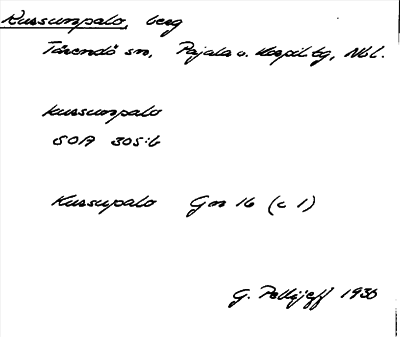 Kursunpalo, berg
Tärendö sn, Pajala o. Korpil. tg, Nbl.
Kursunpalo
SOA 305:b
Kursupalo Gm 16 (c 1)
G. Pellijeff 1936